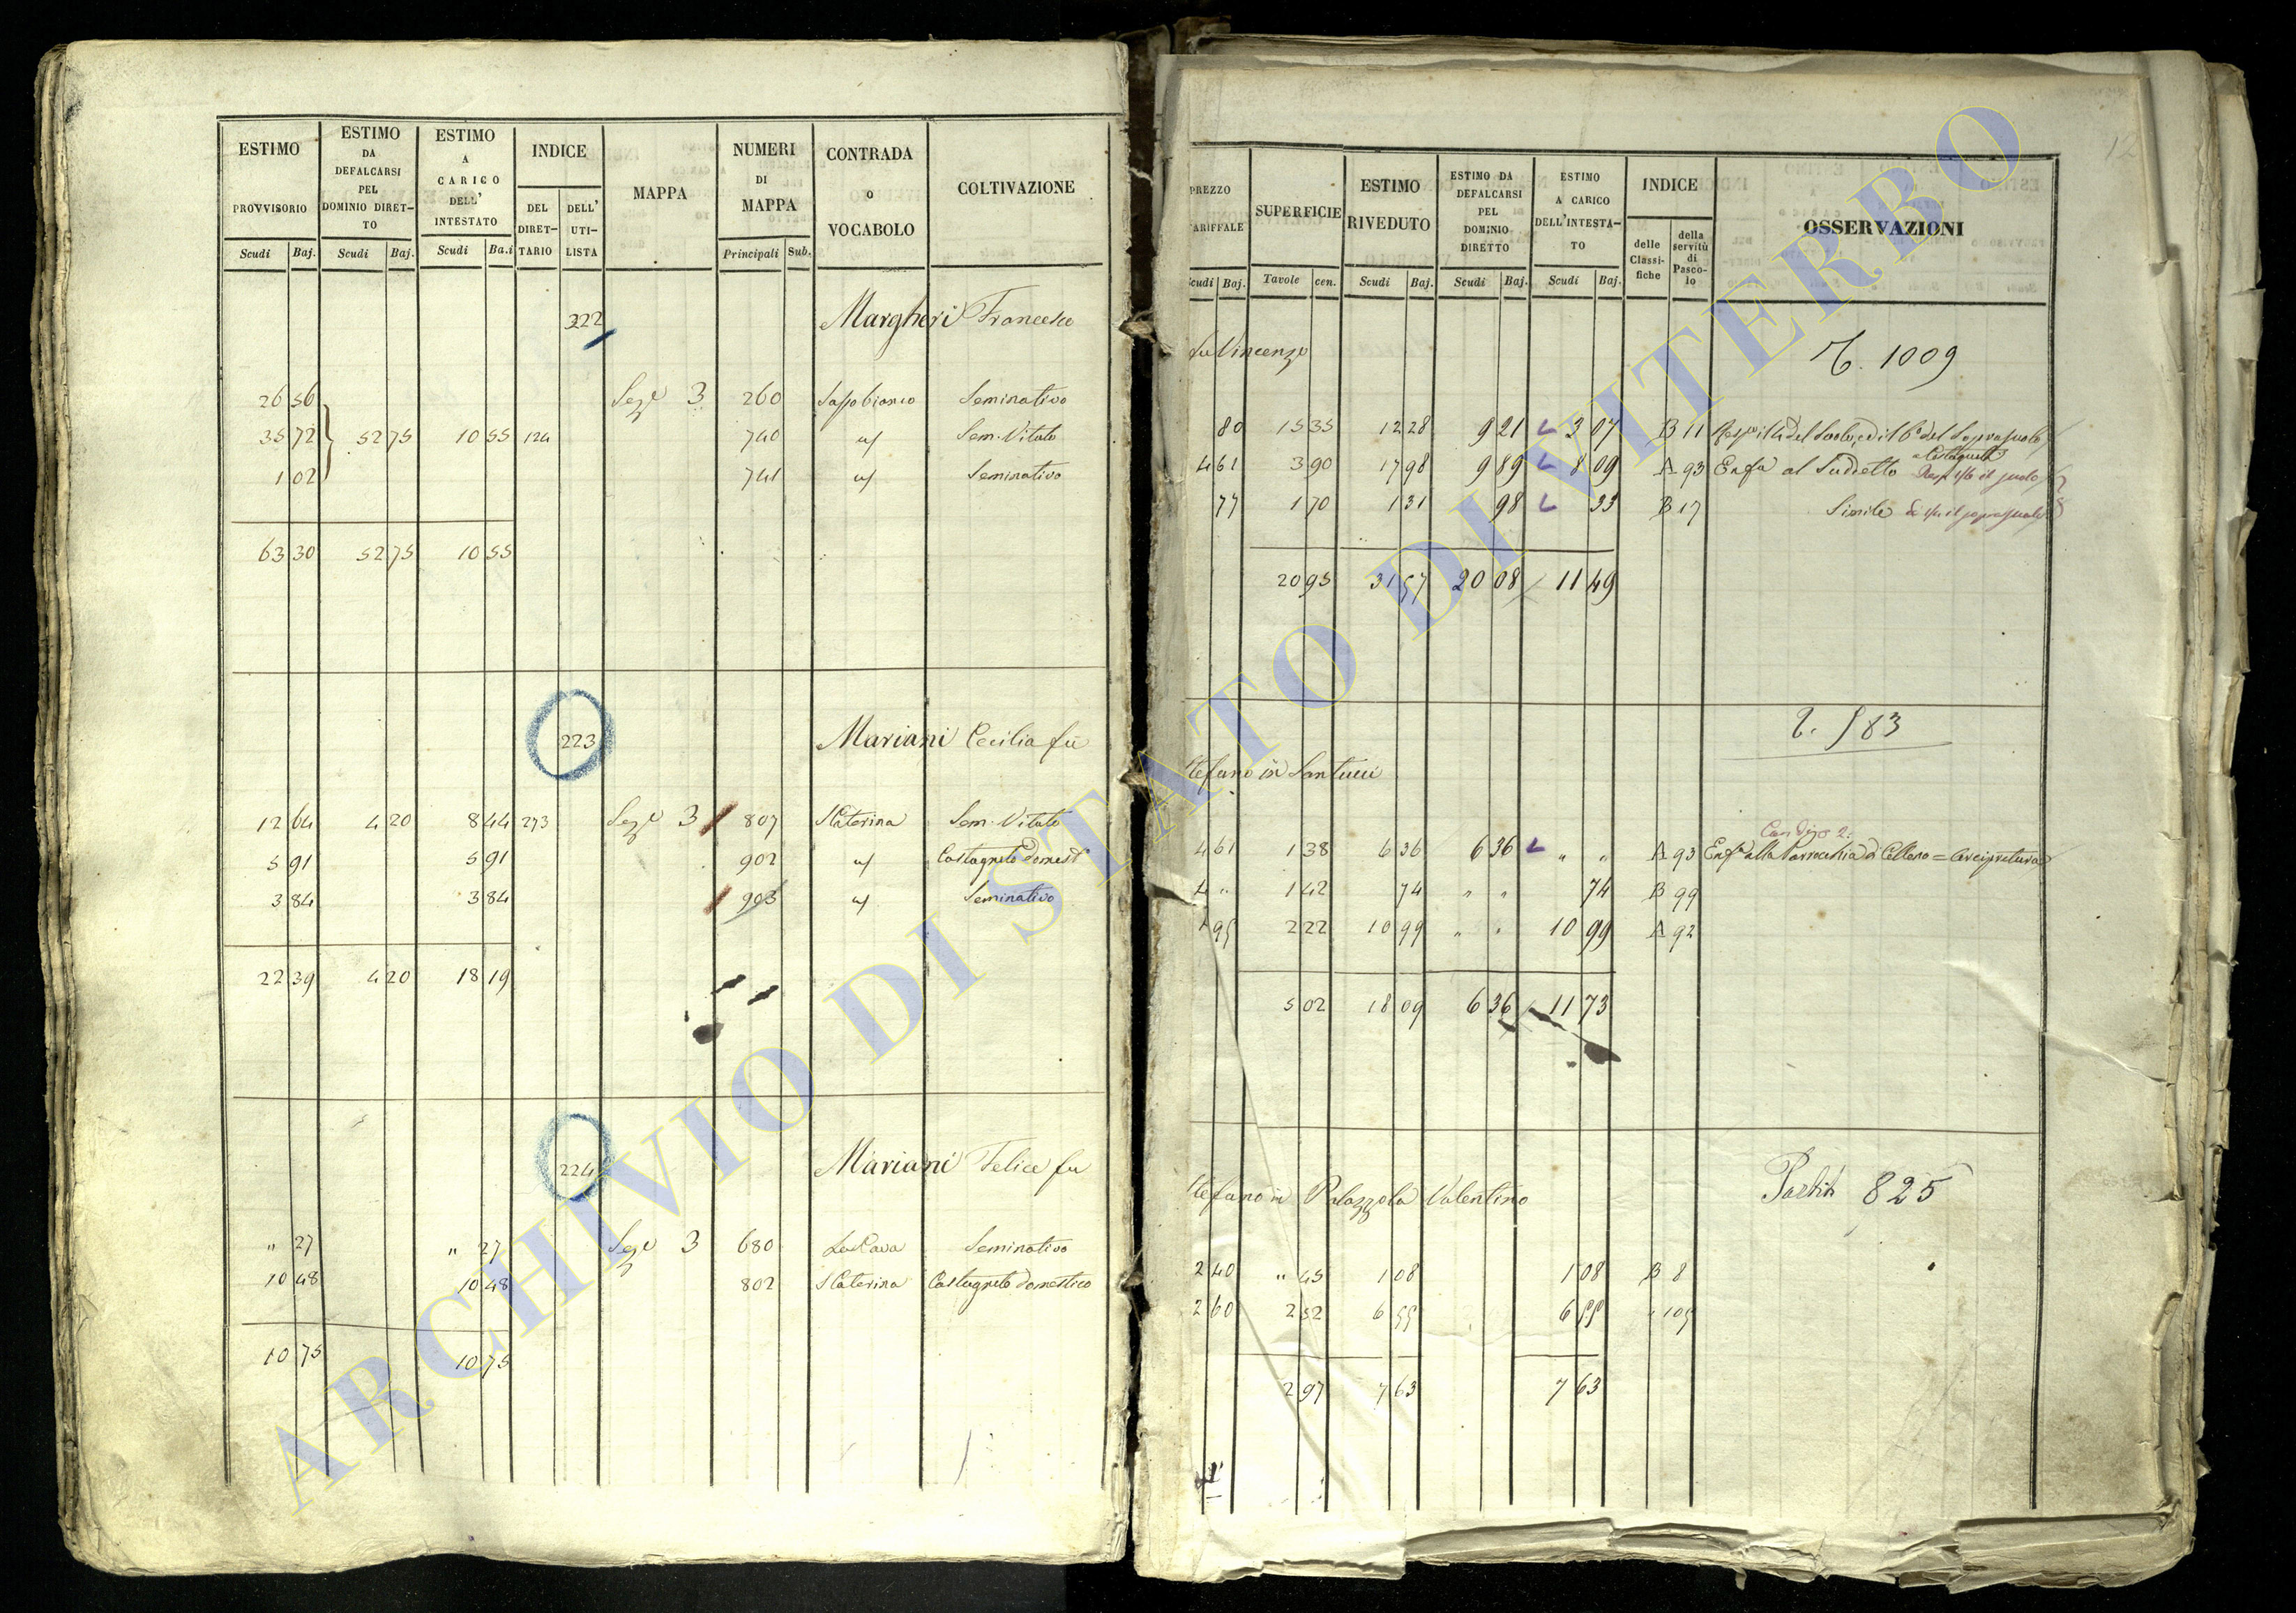 ESTIMO PROVVISORIO Scudi Baj.
ESTIMO DA DEFALCARSI PEL DOMINIO DIRETTO Scudi Baj.
ESTIMO A CARICO DELL' INTESTATO Scudi Ba.i
INDICE DEL DIRETTARIO DELL' UTILISTA
MAPPA
NUMERI DI MAPPA Principali Sub.
CONTRADA O VOCABOLO
COLTIVAZIONE
222 Margheri Francesco
26 56 Sez.e 3 260 Sassobianco Seminativo
35 72 52 75 10 55 124 740 " Sem. Vitato
1 02 741 " Seminativo
63 30 52 75 10 55
223 Mariani Cecilia fu
12 64 4 20 8 44 273 Sez.e 3 807 S Caterina Sem. Vitato
5 91 5 91 902 " Castagneto domest
3 84 3 84 903 " Seminativo
22 39 4 20 18 19
224 Mariani Felice fu
" 27 " 27 Sez.e 3 680 La Cava Seminativo
10 48 10 48 802 S Caterina Castagneto domestico
10 75 10 75
12
PREZZO TARIFFALE Scudi Baj.
SUPERFICIE Tavole cen.
ESTIMO RIVEDUTO Scudi Baj.
ESTIMO DA DEFALCARSI PEL DOMINIO DIRETTO Scudi Baj.
ESTIMO A CARICO DELL'INTESTATO Scudi Baj.
INDICE delle Classifiche della servitù di Pascolo
OSSERVAZIONI
fu Vincenzo
T. 1009
80 15 35 12 28 9 21 3 07 B 11
4 61 3 90 17 98 9 89 8 09 A 93 Enfa al Suddetto
77 1 70 1 31 98 33 B 17 Simile
20 95 31 57 20 08 11 49
T. 583
Stefano in Santucci
4 61 1 38 6 36 6 36 " " A 93 Enfa alla Parrocchia di Celleno = Arcipretura
4 " 1 42 74 " " 74 B 99
4 95 2 22 10 99 " " 10 99 A 92
5 02 18 09 6 36 11 73
Stefano in Palazzola Valentino
Partita 825
2 40 " 45 1 08 1 08 B 8
2 60 2 52 6 55 6 55 " 105
2 97 7 63 7 63
ARCHIVIO DI STATO DI VITERBO